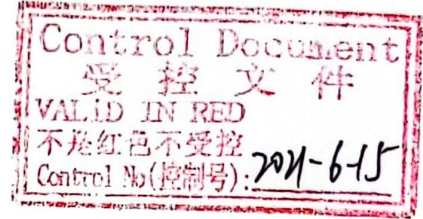 Control Document
受控文件
VALID IN RED
不是红色不受控
Control No(控制号):2021-6-15